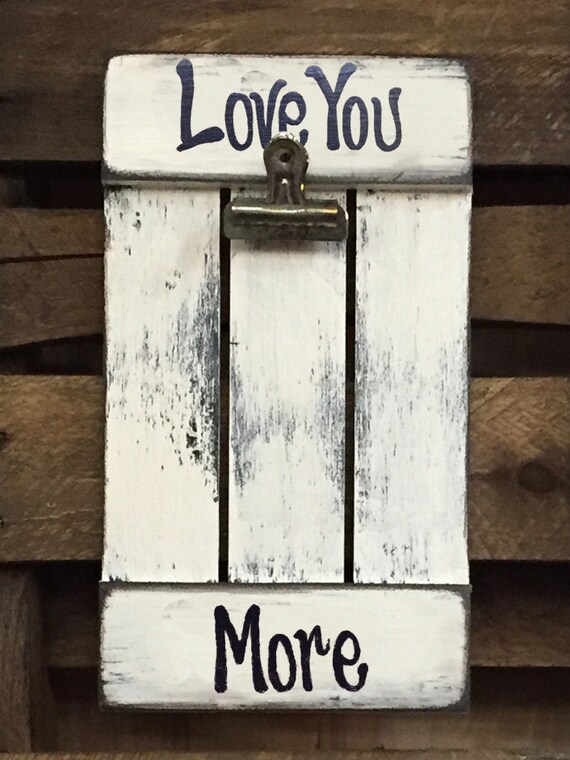 Love You
More